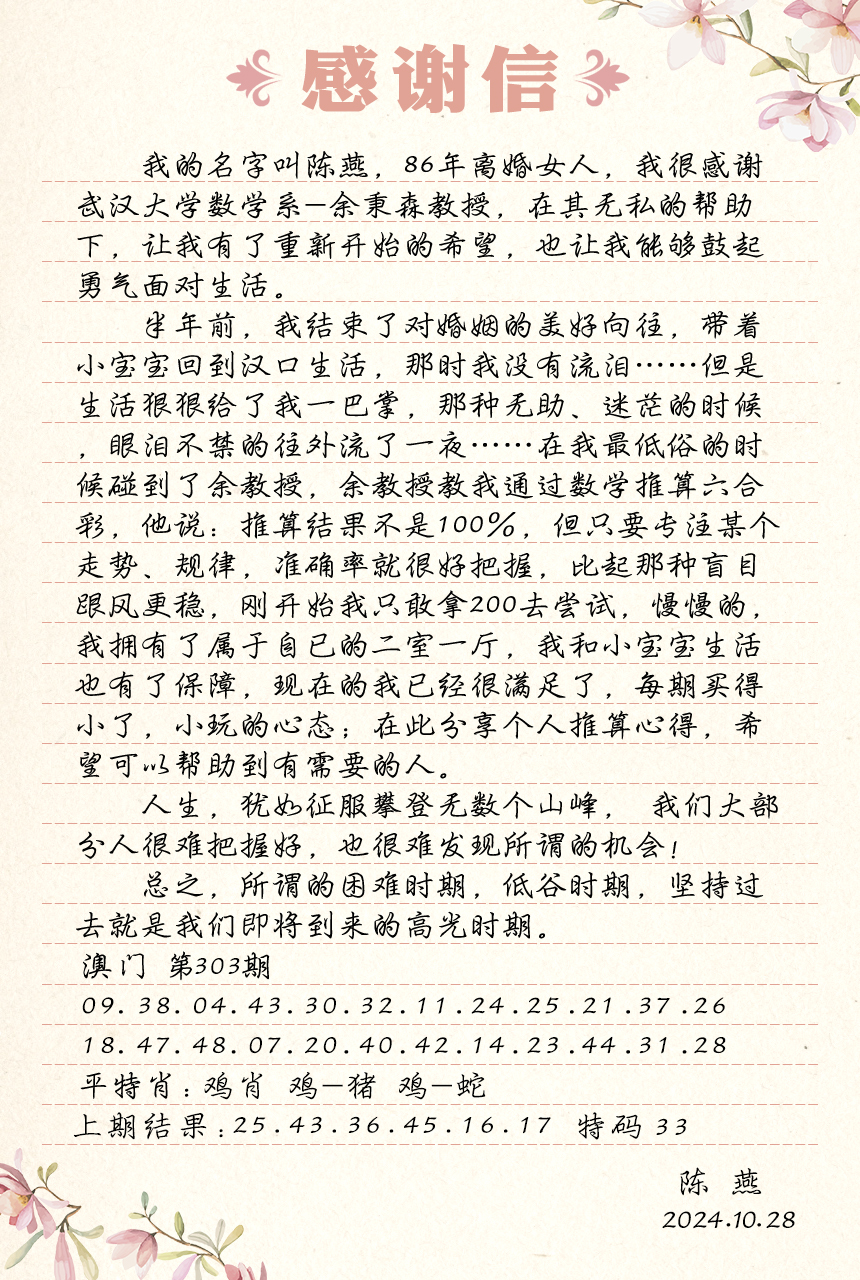 感谢信
我的名字叫陈燕，86年离婚女人，我很感谢
武汉大学数学系—余秉森教授，在其无私的帮助
下，让我有了重新开始的希望，也让我能够鼓起
勇气面对生活。
半年前，我结束了对婚姻的美好向往，带着
小宝宝回到汉口生活，那时我没有流泪……但是
生活狠狠给了我一巴掌，那种无助、迷茫的时候
，眼泪不禁的往外流了一夜……在我最低俗的时
候碰到了余教授，余教授教我通过数学推算六合
彩，他说：推算结果不是100%，但只要专注某个
走势、规律，准确率就很好把握，比起那种盲目
跟风更稳，刚开始我只敢拿200去尝试，慢慢的，
我拥有了属于自已的二室一厅，我和小宝宝生活
也有了保障，现在的我已经很满足了，每期买得
小了，小玩的心态；在此分享个人推算心得，希
望可以帮助到有需要的人。
人生，犹如征服攀登无数个山峰， 我们大部
分人很难把握好，也很难发现所谓的机会！
总之，所谓的困难时期，低谷时期，坚持过
去就是我们即将到来的高光时期。
澳门 第303期
09.38.04.43.30.32.11.24.25.21.37.26
18.47.48.07.20.40.42.14.23.44.31.28
平特肖：鸡肖 鸡—猪 鸡—蛇
上期结果：25.43.36.45.16.17 特码 33
陈 燕
2024.10.28